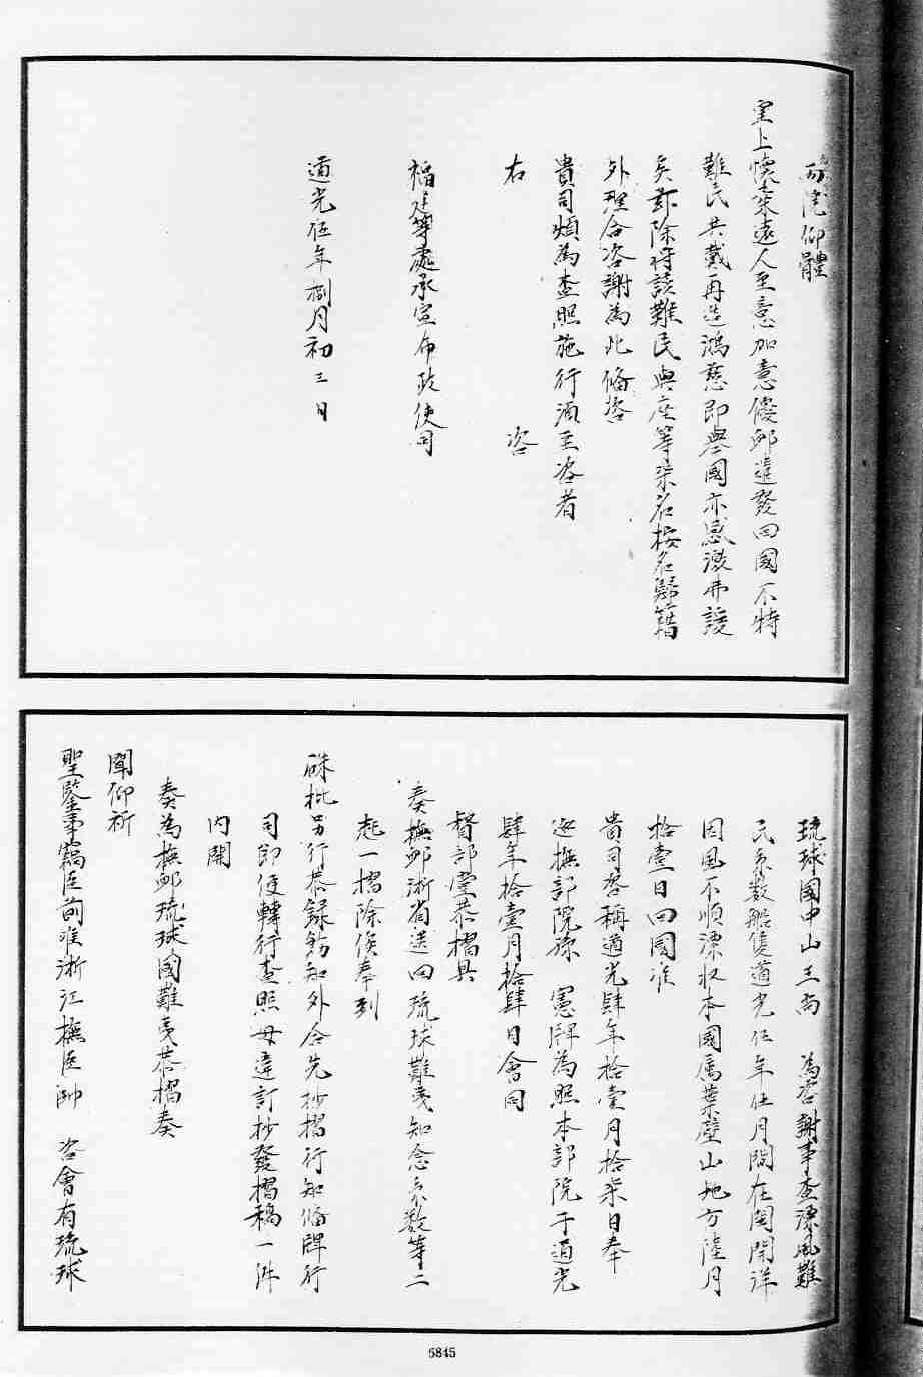 兩院仰體
皇上懷柔遠人至意加意優卹遣發回國不特
難民共戴再造鴻慈即舉國亦感激弗諼
矣玆除将該難民與座等柒名按名歸籍
外理合咨謝為此俻咨
貴司煩為查照施行湏至咨者
右　　　　　　咨
福建等處承宣布政使司
道光伍年捌月初三日
琉球國中山王尚　為咨謝事查漂風難
民糸数船隻道光伍年伍月間在閩開洋
因風不順漂収本國属葉壁山地方陸月
拾壹日回國准
貴司咨稱道光肆年拾壹月拾柒日奉
廵撫部院孫　憲牌為照本部院于道光
肆年拾壹月拾肆日會同
督部堂恭摺具
奏撫卹浙省送回琉球難夷知念糸数等二
起一摺除俟奉到
硃批另行恭録飭知外合先抄摺行知俻牌行
司即便轉行查照毋違計抄發摺稿一件
内開
奏為撫卹琉球國難夷恭摺奏
聞仰祈
聖鑒事竊臣前准浙江撫臣帥　咨會有琉球
6845